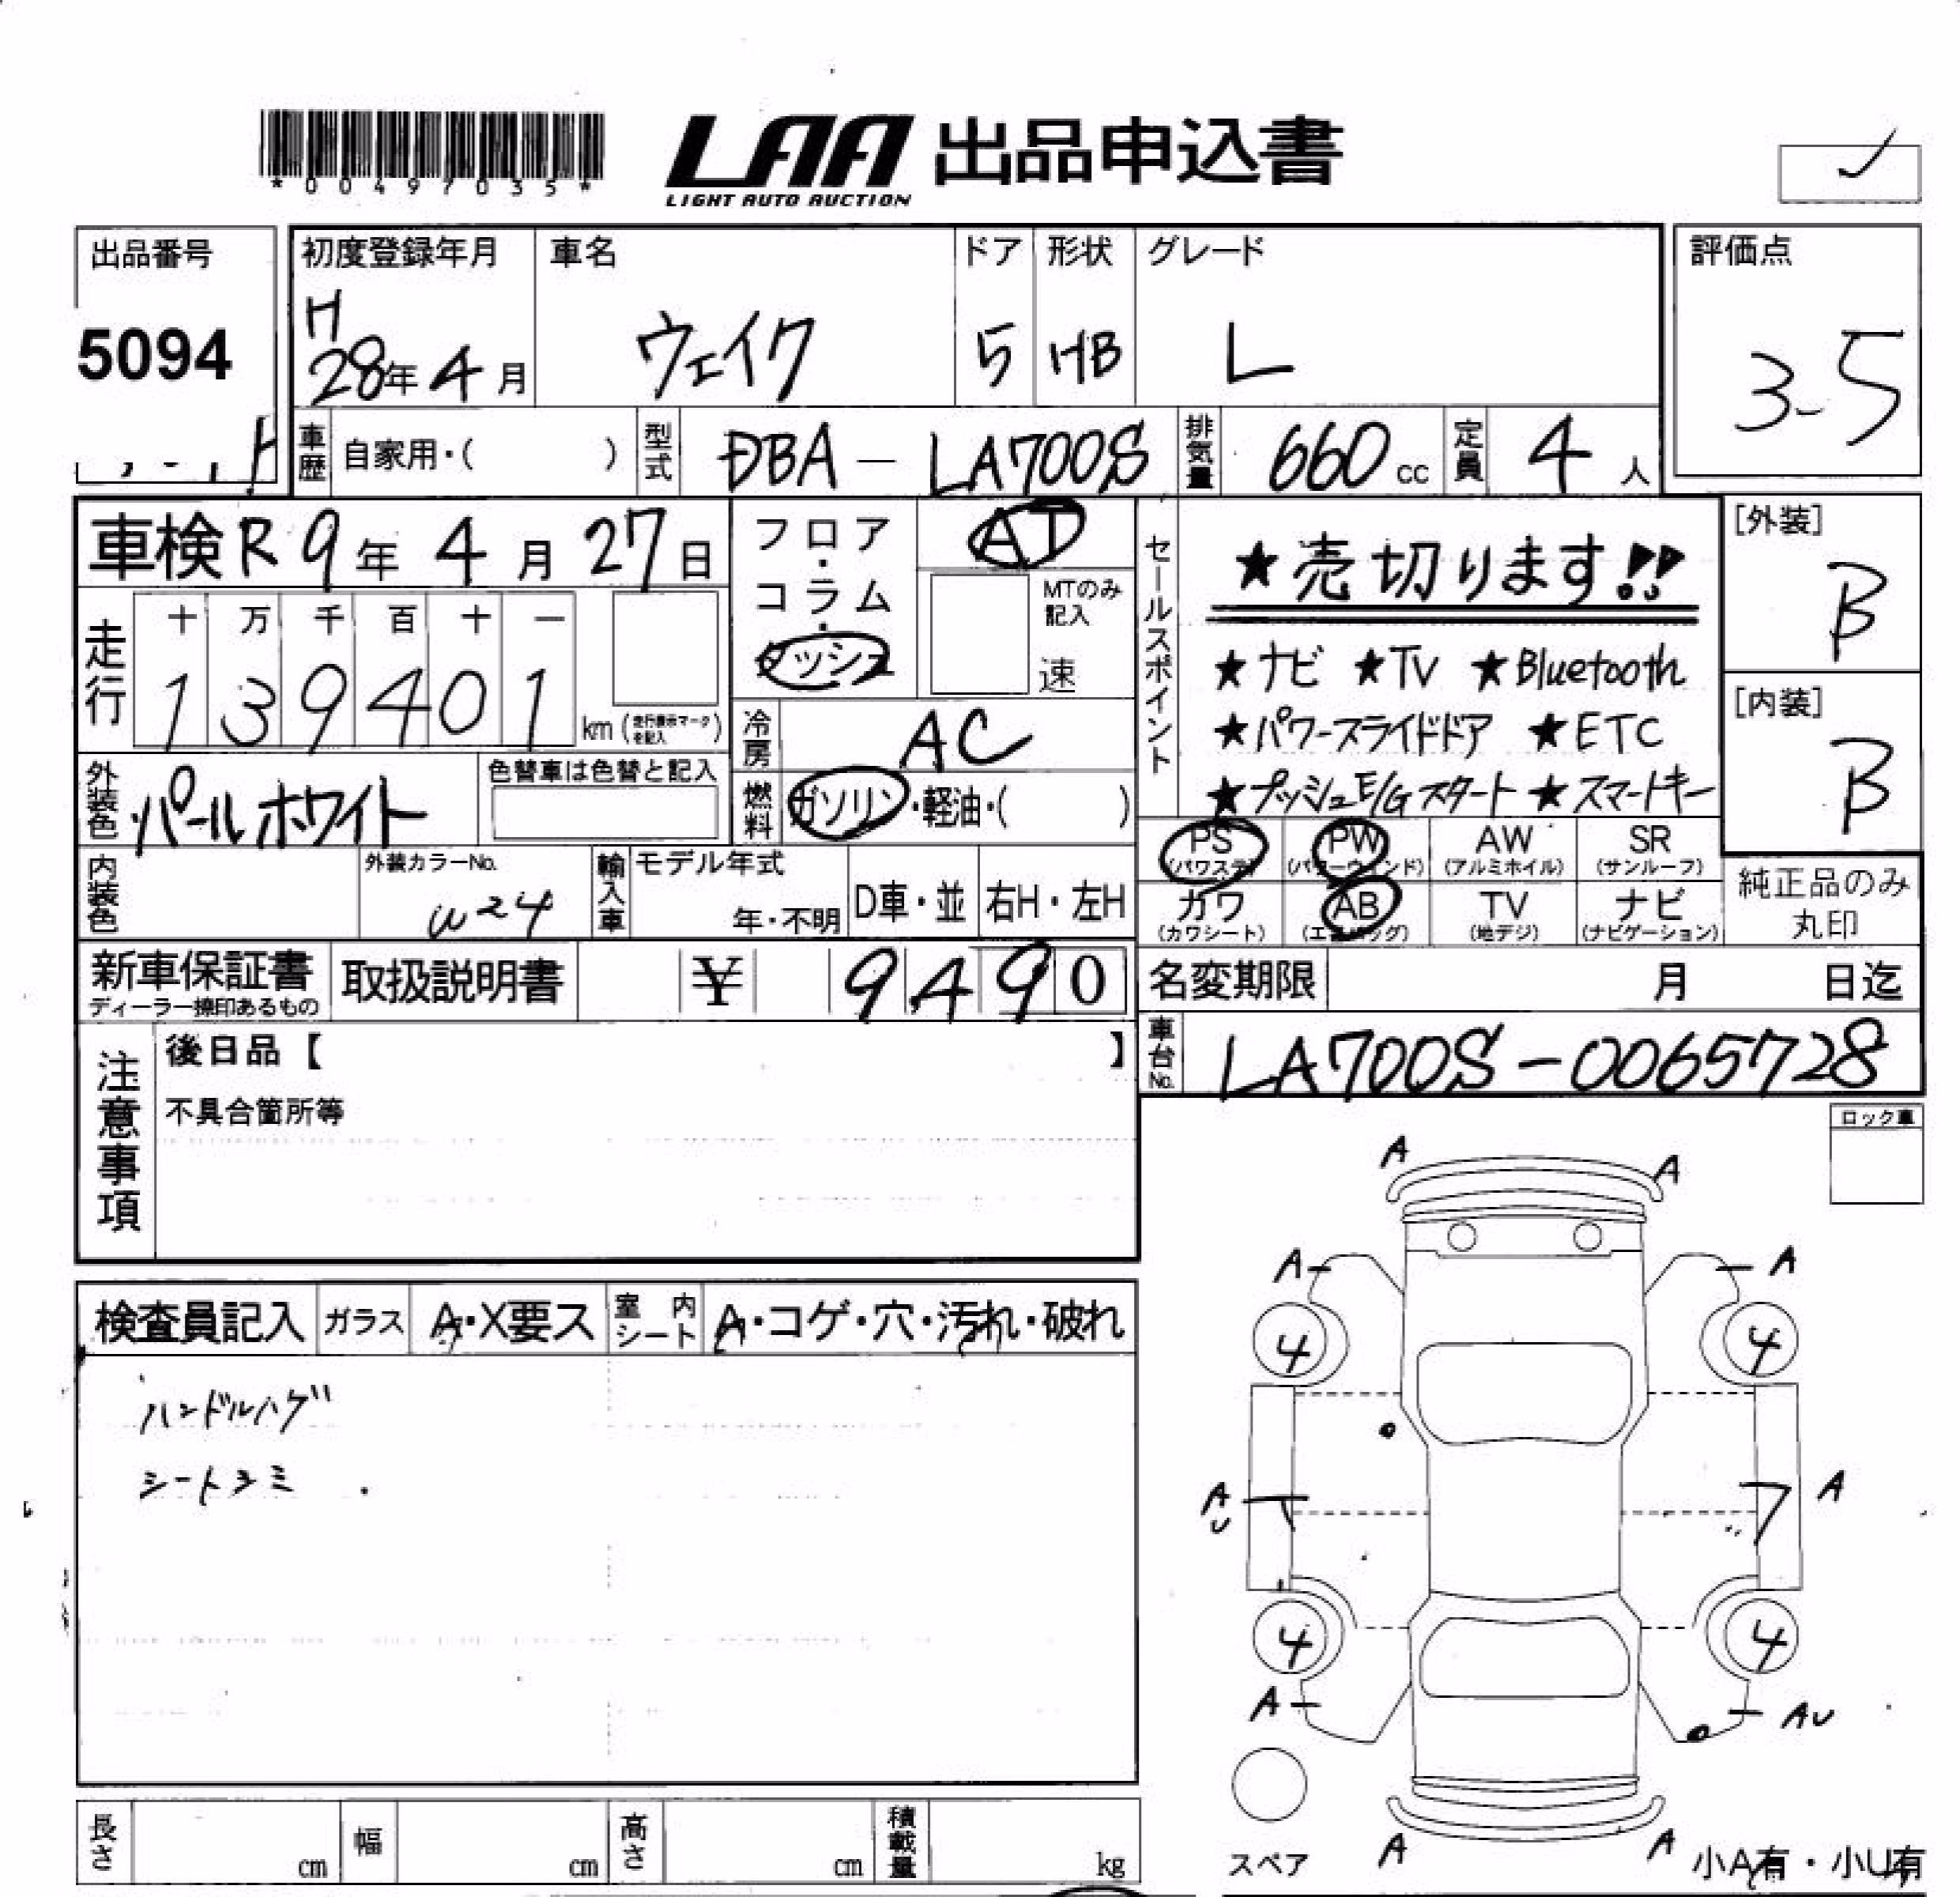 *00497035*
LAA 出品申込書
LIGHT AUTO AUCTION
出品番号
5094
初度登録年月
H
28年4月
車名
ウェイク
ドア
5
形状
HB
グレード
L
評価点
3-5
車歴 自家用・( )
型式 DBA - LA700S
排気量 660 cc
定員 4人
車検 R9年4月27日
走行
十 万 千 百 十 一
1 3 9 4 0 1 km (走行表示マークを記入)
フロア・コラム・ダッシュ
AT
MTのみ記入
速
冷房 AC
燃料 ガソリン・軽油・( )
セールスポイント
★売切ります!!
★ナビ ★TV ★Bluetooth
★パワースライドドア ★ETC
★プッシュE/Gスタート ★スマートキー
[外装]
B
[内装]
B
外装色 パールホワイト
色替車は色替と記入
内装色
外装カラーNo.
W24
輸入車
モデル年式
年・不明
D車・並
右H・左H
PS (パワステ)
PW (パワーウィンド)
AW (アルミホイル)
SR (サンルーフ)
カワ (カワシート)
AB (エアバッグ)
TV (地デジ)
ナビ (ナビゲーション)
純正品のみ
丸印
新車保証書
ディーラー捺印あるもの
取扱説明書
¥ 9490
名変期限 月 日迄
車台No. LA700S-0065728
注意事項
後日品【 】
不具合箇所等
ロック車
検査員記入
ガラス A・X要ス
室内シート A・コゲ・穴・汚れ・破れ
ハンドルハゲ
シートヨミ
A A
A A
4 4
A U A
4 4
A AU
A A
スペア
小A有・小U有
長さ cm
幅 cm
高さ cm
積載量 kg